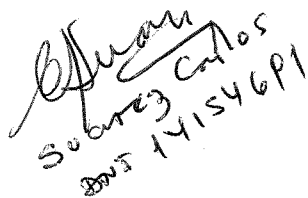 Suarez Carlos
DNI 14154691